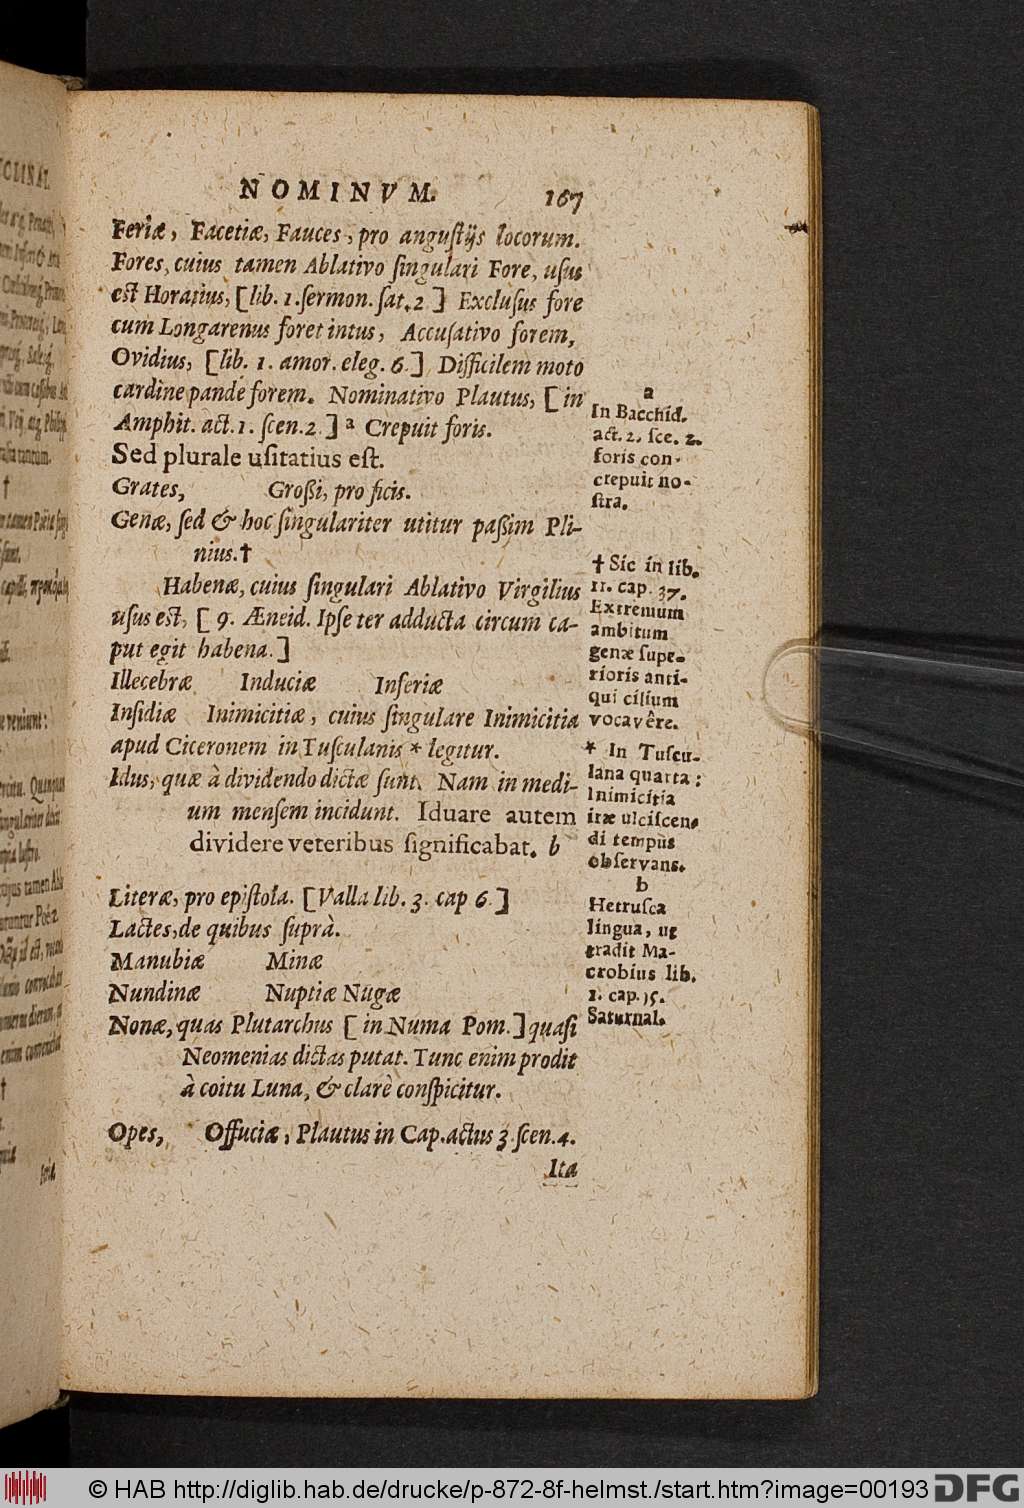 NOMINVM. 167
Feriæ, Facetiæ, Fauces, pro anguſtijs locorum.
Fores, cuius tamen Ablativo ſingulari Fore, uſus
eſt Horatius, [lib. 1. ſermon. ſat. 2.] Excluſus fore
cum Longarenus foret intus, Accuſativo forem,
Ovidius, [lib. 1. amor. eleg. 6.] Difficilem moto
cardine pande forem. Nominativo Plautus, [in
Amphit. act. 1. ſcen. 2.] a Crepuit foris.
Sed plurale uſitatius eſt.
Grates, Groſſi, pro ficis.
Genæ, ſed & hoc ſingulariter utitur paſſim Pli-
nius. †
Habenæ, cuius ſingulari Ablativo Virgilius
uſus eſt, [9. Æneid. Ipſe ter adducta circum ca-
put egit habena.]
Illecebræ Induciæ Inferiæ
Inſidiæ Inimicitiæ, cuius ſingulare Inimicitia
apud Ciceronem in Tuſculanis * legitur.
Idus, quæ à dividendo dictæ ſunt. Nam in medi-
um menſem incidunt. Iduare autem
dividere veteribus ſignificabat. b
Literæ, pro epiſtola. [Valla lib. 3. cap 6.]
Lactes, de quibus ſuprà.
Manubiæ Minæ
Nundinæ Nuptiæ Nugæ
Nonæ, quas Plutarchus [in Numa Pom.] quaſi
Neomenias dictas putat. Tunc enim prodit
à coitu Luna, & clarè conſpicitur.
Opes, Offuciæ, Plautus in Cap. actus 3. ſcen. 4.
Ita
a
In Bacchid.
act. 2. ſce. 2.
foris con-
crepuit no-
ſtra.
† Sic in lib.
11. cap. 37.
Extremum
ambitum
genæ ſupe-
rioris anti-
qui cilium
vocavêre.
* In Tuſcu-
lana quarta:
Inimicitia
iræ ulciſcen-
di tempus
obſervans.
b
Hetruſca
lingua, ut
tradit Ma-
crobius lib.
1. cap. 15.
Saturnal.
© HAB http://diglib.hab.de/drucke/p-872-8f-helmst./start.htm?image=00193
DFG